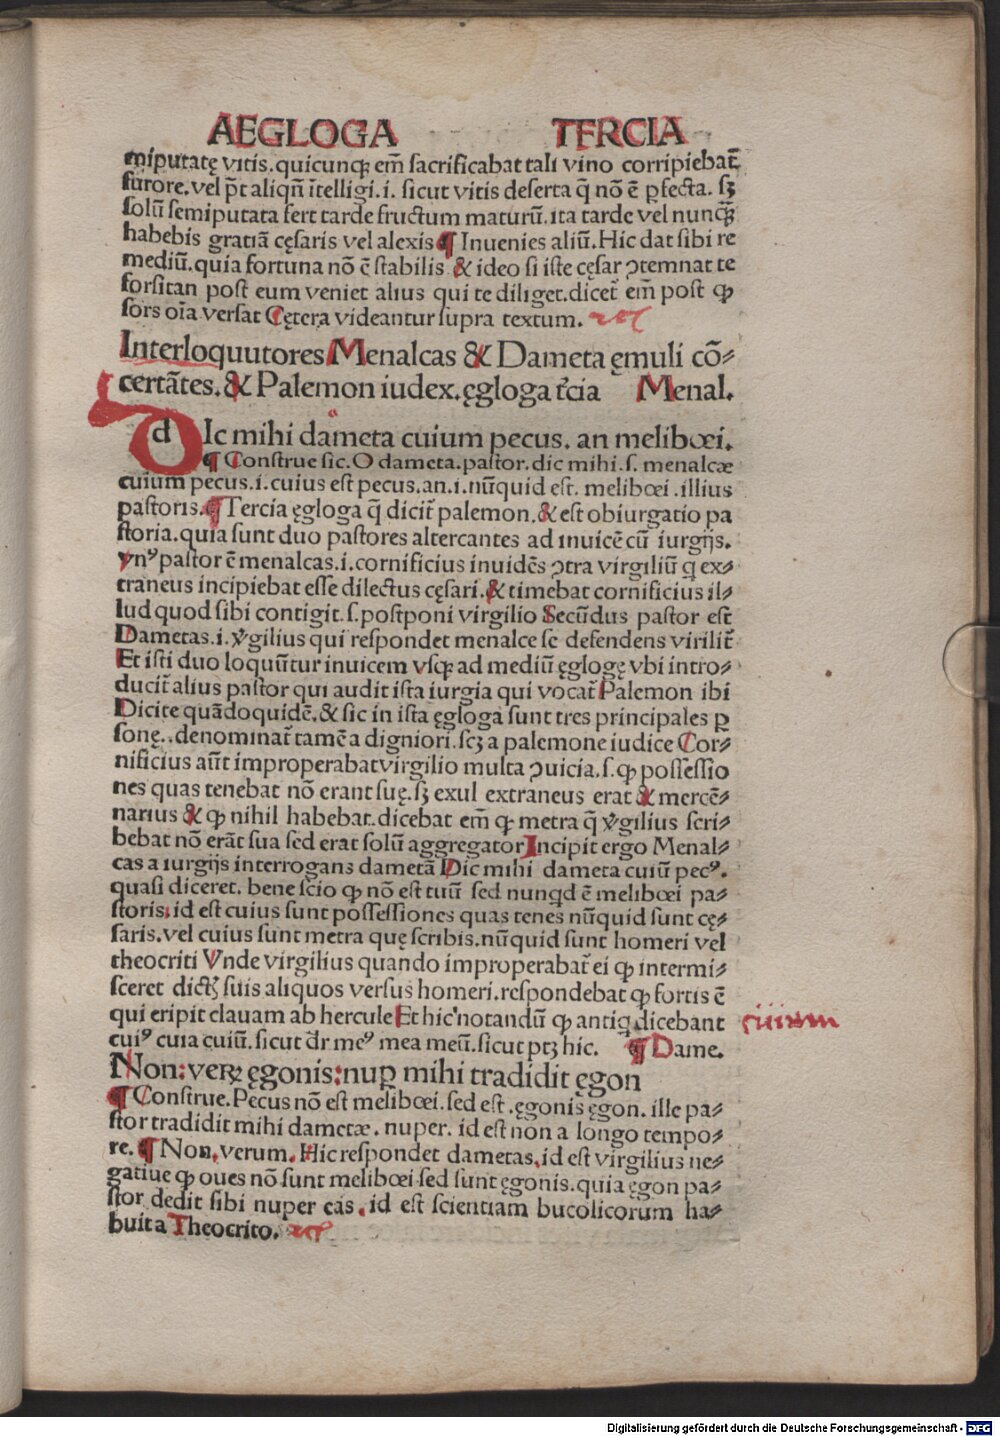 AEGLOGA TERCIA
miputatę vitis.quicunqꝫ em̄ sacrificabat tali vino corripiebat᷑
furore.vel p̄t aliqñ ītelligi.i. sicut vitis deserta q̄ nō ē ꝑfecta. sꝫ
solū semiputata fert tarde fructum maturū.ita tarde vel nunqꝫ̄
habebis gratiā cęsaris vel alexis ¶ Inuenies aliū.Hic dat sibi re
mediū.quia fortuna nō ē stabilis & ideo si iste cęsar ↄtemnat te
forsitan post eum veniet alius qui te diliget.dicet᷑ em̄ post ꝙ
sors oīa versat Cętera videantur supra textum.
Interloquutores Menalcas & Dameta ęmuli cō⸗
certātes.& Palemon iudex.ęgloga t᷑cia Menal.
dIc mihi dameta cuium pecus. an melibœi.
¶ Construe sic. O dameta.pastor.dic mihi.s. menalcæ
cuium pecus.i.cuius est pecus.an.i.nūquid est. melibœi .illius
pastoris.¶ Tercia ęgloga q̄ dicit᷑ palemon.& est obiurgatio pa
storia.quia sunt duo pastores altercantes ad inuicē cū iurgijs.
vnꝰ pastor ē menalcas.i.cornificius inuidēs ↄtra virgiliū q ex⸗
traneus incipiebat esse dilectus cęsari.& timebat cornificius il⸗
lud quod sibi contigit.s.postponi virgilio Secūdus pastor est
Dametas.i.v̊gilius qui respondet menalce se defendens virilit᷑
Et isti duo loquūtur inuicem vsqꝫ ad mediū ęglogę vbi intro⸗
ducit᷑ alius pastor qui audit ista iurgia qui vocat᷑ Palemon ibi
Dicite quādoquidē.& sic in ista ęgloga sunt tres principales ꝑ
sonę..denominat᷑ tamē a digniori.scꝫ a palemone iudice Cor⸗
nificius aūt improperabat virgilio multa ↄuicia.s.ꝙ possessio
nes quas tenebat nō erant suę.sꝫ exul extraneus erat & mercē⸗
narius & ꝙ nihil habebat.dicebat em̄ ꝙ metra q̄ v̊gilius scri⸗
bebat nō erāt sua sed erat solū aggregator Incipit ergo Menal⸗
cas a iurgijs interrogans dametā Dic mihi dameta cuiū pecꝰ.
quasi diceret. bene scio ꝙ nō est tuū sed nunqd ē melibœi pa⸗
storis.id est cuius sunt possessiones quas tenes nūquid sunt cę⸗
saris.vel cuius sunt metra quę scribis.nūquid sunt homeri vel
theocriti Vnde virgilius quando improperabat᷑ ei ꝙ intermi⸗
sceret dictꝭ suis aliquos versus homeri.respondebat ꝙ fortis ē
qui eripit clauam ab hercule Et hic notandū ꝙ antiq dicebant
cuiꝰ cuia cuiū.sicut dr̄ meꝰ mea meū.sicut ptꝫ hic. ¶ Dame.
cuium
Non:veꝝ ęgonis:nuꝑ mihi tradidit ęgon
¶ Construe.Pecus nō est melibœi.sed est .ęgonis ęgon. ille pa⸗
stor tradidit mihi dametæ. nuper. id est non a longo tempo⸗
re. ¶ Non.verum. Hic respondet dametas.id est virgilius ne⸗
gatiue ꝙ oues nō sunt melibœi sed sunt ęgonis.quia ęgon pa⸗
stor dedit sibi nuper eas .id est scientiam bucolicorum ha⸗
buit a Theocrito.
Digitalisierung gefördert durch die Deutsche Forschungsgemeinschaft - DFG